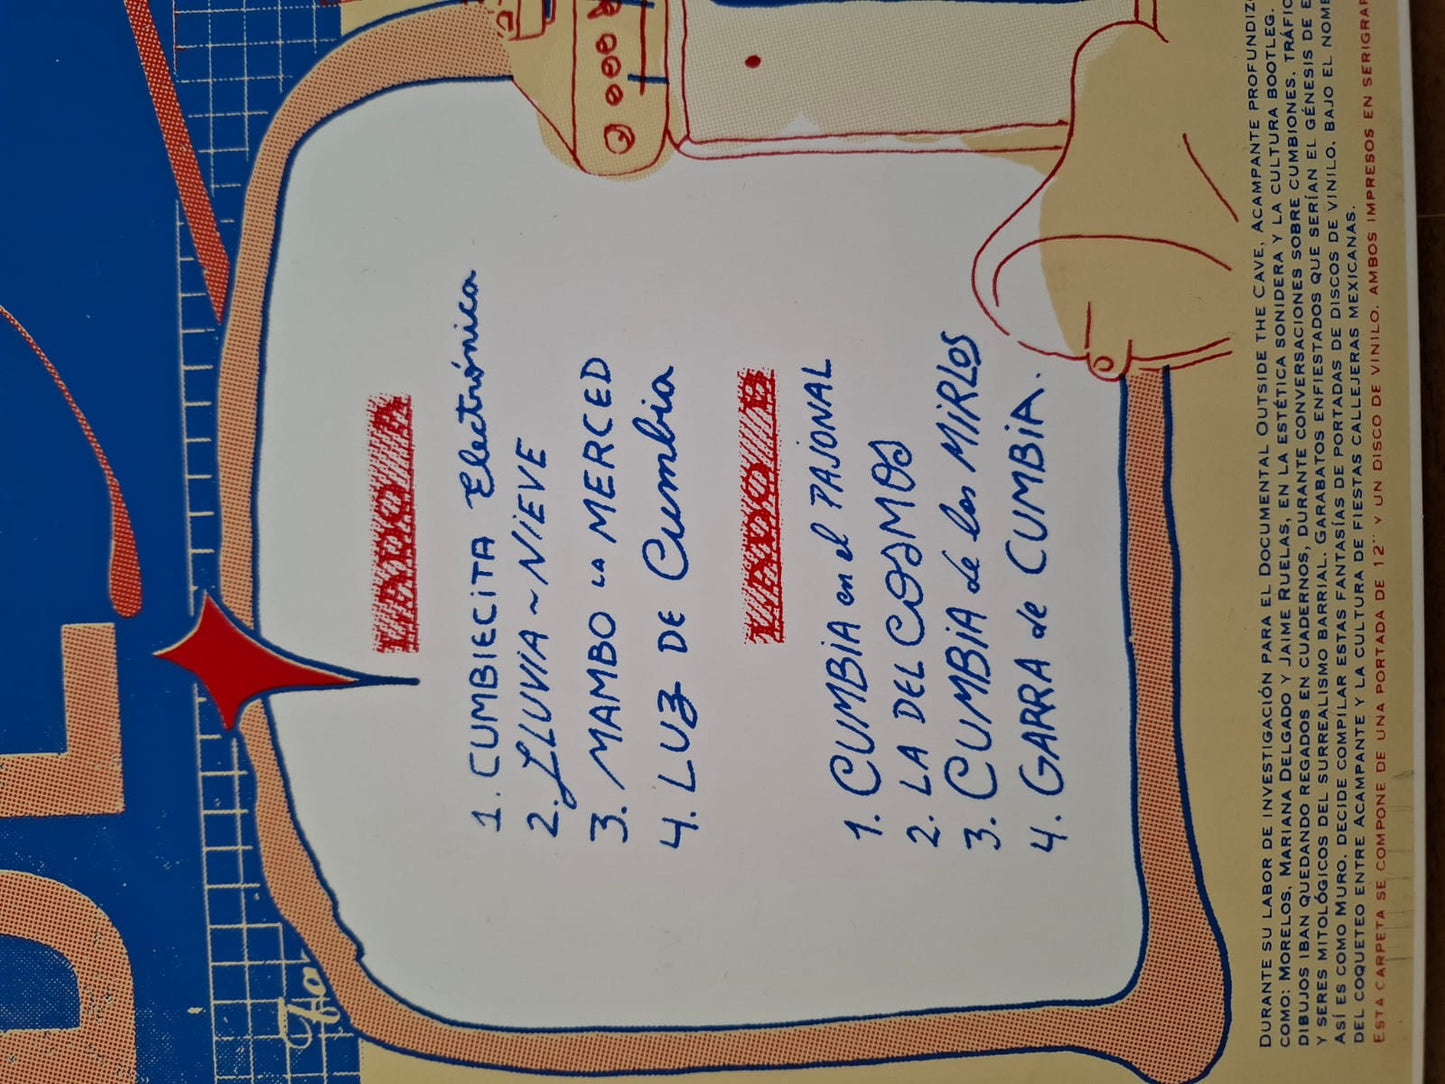 LADO A
1. CUMBIECITA Electrónica
2. LLUVIA ~ NIEVE
3. MAMBO LA MERCED
4. LUZ DE Cumbia
LADO B
1. CUMBIA en el PAJONAL
2. LA DEL COSMOS
3. CUMBIA de los MIRLOS
4. GARRA de CUMBIA.
DURANTE SU LABOR DE INVESTIGACIÓN PARA EL DOCUMENTAL OUTSIDE THE CAVE, ACAMPANTE
COMO: MORELOS, MARIANA DELGADO Y JAIME RUELAS, EN LA ESTÉTICA SONIDERA Y LA CULTURA BOOTLEG.
DIBUJOS IBAN QUEDANDO REGADOS EN CUADERNOS, DURANTE CONVERSACIONES SOBRE CUMBIONES,
Y SERES MITOLÓGICOS DEL SURREALISMO BARRIAL. GARABATOS ENFIESTADOS QUE SERÍAN EL GÉNESIS DE
ASÍ ES COMO MURO, DECIDE COMPILAR ESTAS FANTASÍAS DE PORTADAS DE DISCOS DE VINILO, BAJO EL
DEL COQUETEO ENTRE ACAMPANTE Y LA CULTURA DE FIESTAS CALLEJERAS MEXICANAS.
ESTA CARPETA SE COMPONE DE UNA PORTADA DE 12¨ Y UN DISCO DE VINILO, AMBOS IMPRESOS EN